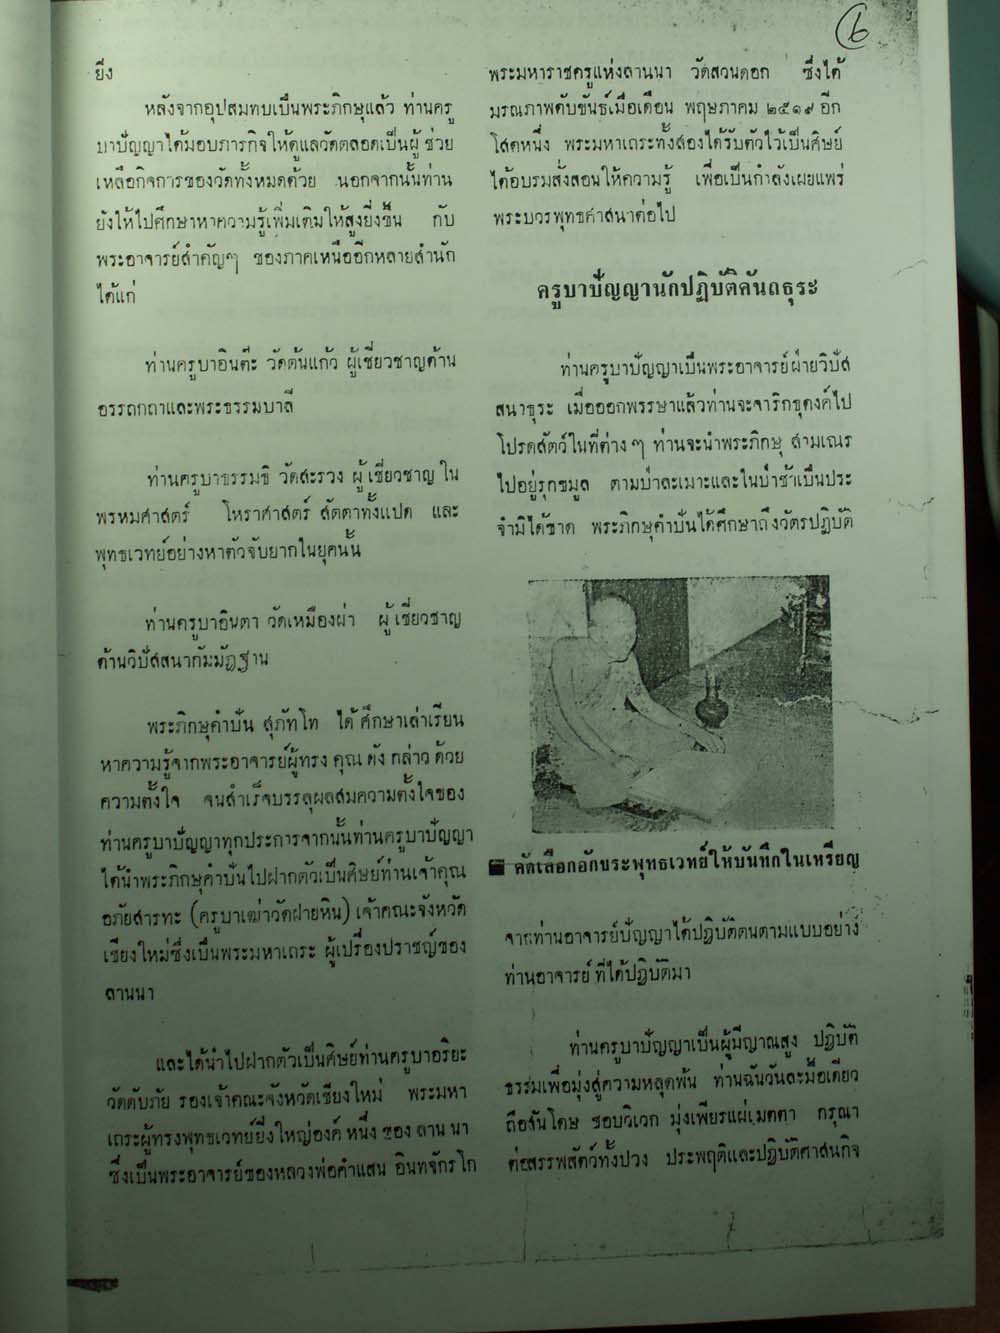 ๖
ยิ่ง
หลังจากอุปสมบทเป็นพระภิกษุแล้ว ท่านครู
บาปัญญาได้มอบภารกิจให้ดูแลวัดตลอดเป็นผู้ช่วย
เหลือกิจการของวัดทั้งหมดด้วย นอกจากนั้นท่าน
ยังให้ไปศึกษาหาความรู้เพิ่มเติมให้สูงยิ่งขึ้น กับ
พระอาจารย์สำคัญๆ ของภาคเหนืออีกหลายสำนัก
ได้แก่
ท่านครูบาอินต๊ะ วัดต้นแก้ว ผู้เชี่ยวชาญด้าน
อรรถกถาและพระธรรมบาลี
ท่านครูบาธรรมธิ วัดสะรวง ผู้เชี่ยวชาญใน
พรหมศาสตร์ โหราศาสตร์ สัตตาทั้งแปด และ
พุทธเวทย์อย่างหาตัวจับยากในยุคนั้น
ท่านครูบาอินตา วัดเหมืองผ่า ผู้เชี่ยวชาญ
ด้านวิปัสสนากัมมัฏฐาน
พระภิกษุคำปัน สุภัทโท ได้ศึกษาเล่าเรียน
หาความรู้จากพระอาจารย์ผู้ทรงคุณดังกล่าวด้วย
ความตั้งใจ จนสำเร็จบรรลุผลสมความตั้งใจของ
ท่านครูบาปัญญาทุกประการจากนั้นท่านครูบาปัญญา
ได้นำพระภิกษุคำปันไปฝากตัวเป็นศิษย์ท่านเจ้าคุณ
อภัยสารทะ (ครูบาเฒ่าวัดฝายหิน) เจ้าคณะจังหวัด
เชียงใหม่ซึ่งเป็นพระมหาเถระ ผู้เปรื่องปราชญ์ของ
ลานนา
และได้นำไปฝากตัวเป็นศิษย์ท่านครูบาอริยะ
วัดดับภัย รองเจ้าคณะจังหวัดเชียงใหม่ พระมหา
เถระผู้ทรงพุทธเวทย์ยิ่งใหญ่องค์หนึ่งของลานนา
ซึ่งเป็นพระอาจารย์ของหลวงพ่อคำแสน อินทจักรโก
พระมหาราชครูแห่งลานนา วัดสวนดอก ซึ่งได้
มรณภาพดับขันธ์เมื่อเดือน พฤษภาคม ๒๕๑๙ อีก
โสดหนึ่ง พระมหาเถระทั้งสองได้รับตัวไว้เป็นศิษย์
ได้อบรมสั่งสอนให้ความรู้ เพื่อเป็นกำลังเผยแพร่
พระบวรพุทธศาสนาต่อไป
ครูบาปัญญานักปฏิบัติคันถธุระ
ท่านครูบาปัญญาเป็นพระอาจารย์ฝ่ายวิปัส
สนาธุระ เมื่อออกพรรษาแล้วท่านจะจาริกธุดงค์ไป
โปรดสัตว์ในที่ต่างๆ ท่านจะนำพระภิกษุ สามเณร
ไปอยู่รุกขมูล ตามป่าละเมาะและในป่าช้าเป็นประ
จำมิได้ขาด พระภิกษุคำปันได้ศึกษาถึงวัตรปฏิบัติ
คัดเลือกอักขระพุทธเวทย์ให้บันทึกในเหรียญ
จากท่านอาจารย์ปัญญาได้ปฏิบัติตนตามแบบอย่าง
ท่านอาจารย์ที่ได้ปฏิบัติมา
ท่านครูบาปัญญาเป็นผู้มีญาณสูง ปฏิบัติ
ธรรมเพื่อมุ่งสู่ความหลุดพ้น ท่านฉันวันละมื้อเดียว
ถือสันโดษ ชอบวิเวก มุ่งเพียรแผ่เมตตา กรุณา
ต่อสรรพสัตว์ทั้งปวง ประพฤติและปฏิบัติศาสนกิจ